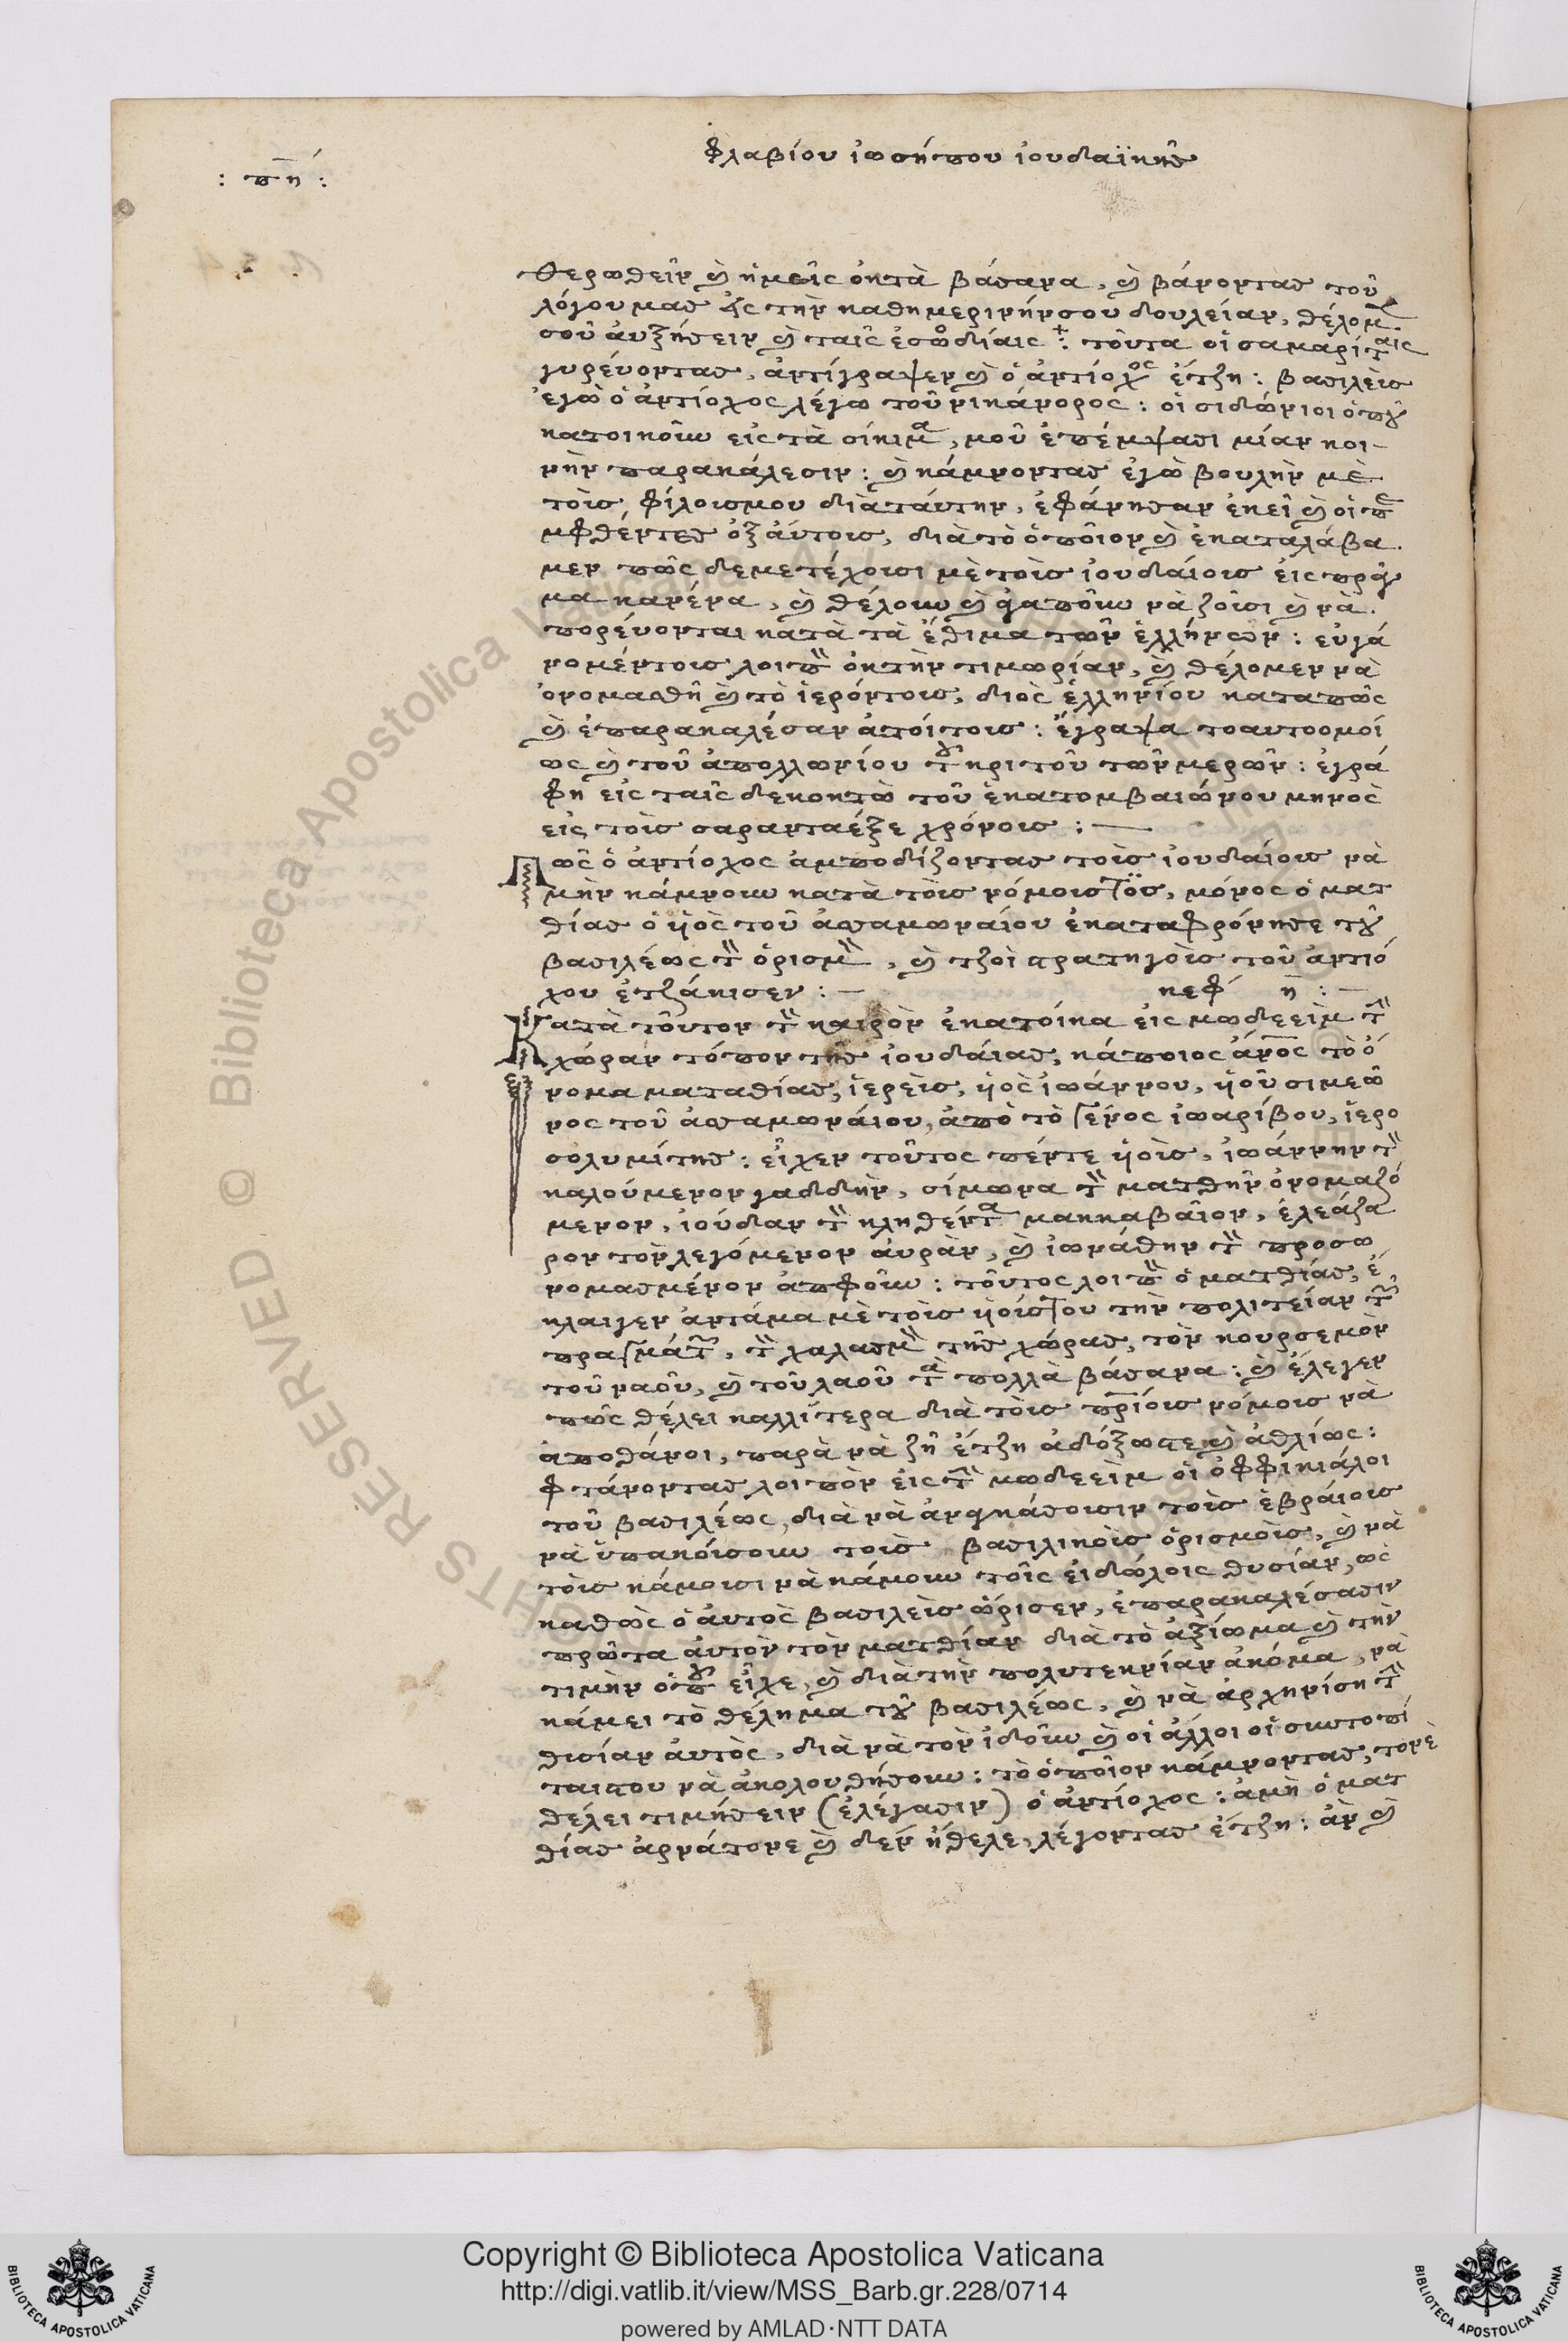 φλαβίου ἰωσήπου ἰουδαϊκῆσ
: πη :
θερωθεῖν καὶ ἡμεῖς ὀκτὰ βάσανα, καὶ βάνοντασ τοῦ
λόγουμασ εἰς τὴν καθημερινήνσου δουλείαν, θέλομεν
σοῦ ἀυξήσειν καὶ ταῖς ἐσωδίαις : τοῦτα οἱ σαμαρίταις
γυρέυοντασ, ἀντίγραψεν καὶ ὁ ἀντίοχος ἔτζη : βασιλεὶσ
ἐγὼ ὁ ἀντίοχος λέγω τοῦ νικάνορος : οἱ σιδώνιοι ὁποῦ
κατοικοῦν εἰς τὰ σίκιμα, μοῦ ἐπέμψασι μίαν κοι-
νὴν παρακάλεσιν : καὶ κάμνοντασ ἐγὼ βουλὴν μὲ
τοὶσ φίλοισμου διὰ τάυτην, ἐφάνησαν ἐκεῖ καὶ οἱ πε
μφθέντεσ ὀξἀύτοισ, διὰ τὸ ὁποῖον καὶ ἐκαταλάβα
μεν πῶς δεμετέχοισι μὲ τοὶσ ἰουδάιοισ εἰς πράγ
μα κανένα, καὶ θέλουν καὶ ἀγαποῦν νὰ ζοῦσι καὶ νὰ
πορέυονται κατὰ τὰ ἔθιμα τῶν ἑλλήνων : εὐγά
νομέντοισ λοιπὸν ὀκτὴν τιμωρίαν, καὶ θέλομεν νὰ
ὀνομασθῆ καὶ τὸ ἱερόντοισ, διὸς ἑλληνίου καταπῶς
καὶ ἐπαρακαλέσαν ἀτοίτοισ : ἔγραψα τοαυτοομοί
ως καὶ τοῦ ἀπολλωνίου τοῦ κριτοῦ τῶν μερῶν : ἐγρά
φη εἰς ταῖς δεκοκτὼ τοῦ ἑκατομβαιώνου μηνὸς
εἰς τοὶσ σαρανταέξε χρόνοισ : —
Πῶς ὁ ἀντίοχος ἀμποδίζοντασ τοὶσ ἰουδαίοισ νὰ
μὴν κάμνουν κατὰ τοὶσ νόμοιστοισ, μόνος ὁ ματ
θίασ ὁ ὑὸς τοῦ ἀσαμωναίου ἐκαταφρόνησε τοῦ
βασιλέως τὸν ὁρισμὸν, καὶ τζοὶ στρατηγοὶσ τοῦ ἀντιό
χου ἐτζάκισεν : — κεφ η : —
Κατὰ τοῦτον τὸν καιρὸν ἐκατοίκα εἰς μωδεεὶμ τὴν
χώραν τόπον τῆσ ἰουδάιασ, κάποιος ἄνος τὸ ὄ
νομα ματαθίασ, ἱερεὶσ, ὑὸς ἰωάννου, ὑοῦ σιμεῶ
νος τοῦ ἀσαμωνάιου, ἀπὸ τὸ γένος ἰωαρίβου, ἱερο
σολυμίτησ : εἶχεν τοῦτος πέντε ὑοὶσ, ἰωάννην τὸν
καλούμενον γαδδὴν, σίμωνα τὸν ματθὴν ὀνομαζό
μενον, ἰούδαν τὸν κληθέντα μακκαβαῖον, ἐλεάζα
ρον τὸν λεγόμενον ἀυρὰν, καὶ ἰωνάθην τὸν προσω
νομασμένον ἀπφοῦν : τοῦτος λοιπὸν ὁ ματθίασ, ἐ
κλαιγεν ἀντάμα μὲ τοὶσ ὑοίστου τὴν πολιτείαν τῶν
πραγμάτων, τὸν χαλασμὸν τῆσ χώρασ, τὸν κουρσεμὸν
τοῦ ναοῦ, καὶ τοῦ λαοῦ τὰ πολλὰ βάσανα : καὶ ἔλεγεν
πῶς θέλει καλλίτερα διὰ τοὶσ πρίοισ νόμοισ νὰ
ἀποθάνοι, παρὰ νὰ ζῆ ἔτζη ἀδόξωστε καὶ ἀθλίως :
φτάνοντασ λοιπὸν εἰς τὴν μωδεεὶμ οἱ ὀφφικιάλοι
τοῦ βασιλέως, διὰ νὰ ἀναγκάσοισιν τοὶσ ἑβράιοισ
νὰ ὑπακόισουν τοισ βασιλικοὶσ ὁρισμοὶσ, καὶ νὰ
τοὶσ κάμοισι νὰ κάμουν τοῖς εἰδώλοις θυσίαν, ὡς
καθὼς ὁ ἀυτὸς βασιλεὶσ ὥρισεν, ἐπαρακαλέσασιν
πρῶτα ἀυτὸν τὸν ματθίαν διὰ τὸ ἀξίωμα καὶ τὴν
τιμὴν ὁποῦ εἶχε, καὶ διὰ τὴν πολυτεκνίαν ἀκόμα, νὰ
κάμει τὸ θέλημα τοῦ βασιλέως, καὶ νὰ ἀρχηνίση τὴν
θισίαν ἀυτὸς, διὰ νὰ τὸν ἰδοῦν καὶ οἱ ἄλλοι οἱ συντοπί
ταιτου νὰ ἀκολουθήσουν : τὸ ὁποῖον κάμνοντασ, τονὲ
θέλει τιμήσειν (ἐλέγασιν) ὁ ἀντίοχος : ἀμὴ ὁ ματ
θίασ ἀρνάτονε καὶ δεν ἤθελε, λέγοντασ ἔτζη : ἂν καὶ
Copyright © Biblioteca Apostolica Vaticana
http://digi.vatlib.it/view/MSS_Barb.gr.228/0714
powered by AMLAD·NTT DATA